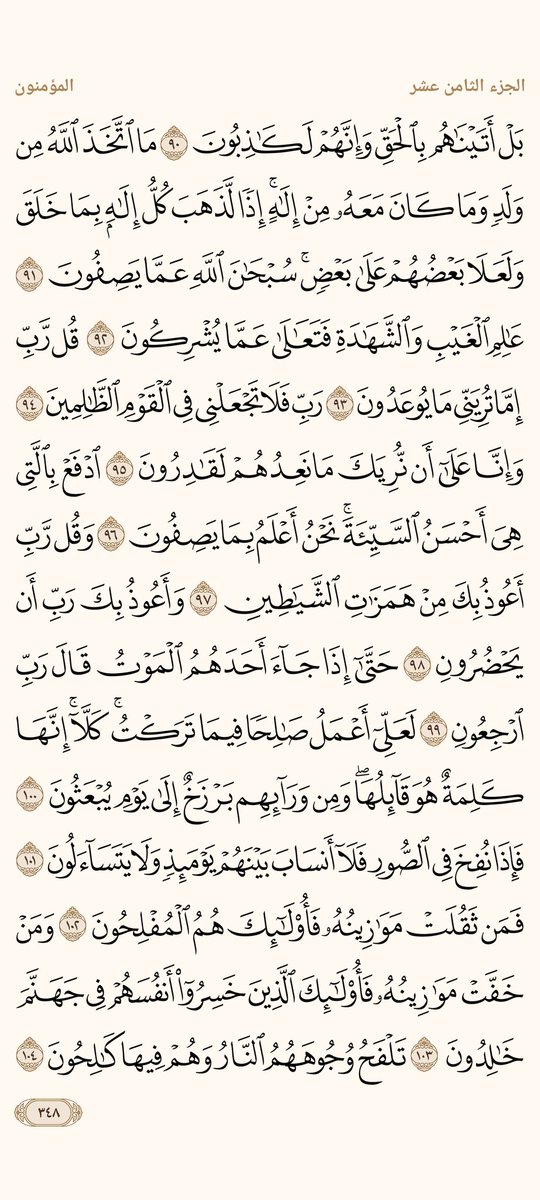 الجزء الثامن عشر
المؤمنون
بَلْ أَتَيْنَٰهُم بِٱلْحَقِّ وَإِنَّهُمْ لَكَٰذِبُونَ ٩٠ مَا ٱتَّخَذَ ٱللَّهُ مِن
وَلَدٍ وَمَا كَانَ مَعَهُۥ مِنْ إِلَٰهٍ ۚ إِذًا لَّذَهَبَ كُلُّ إِلَٰهٍۭ بِمَا خَلَقَ
وَلَعَلَا بَعْضُهُمْ عَلَىٰ بَعْضٍ ۚ سُبْحَٰنَ ٱللَّهِ عَمَّا يَصِفُونَ ٩١
عَٰلِمِ ٱلْغَيْبِ وَٱلشَّهَٰدَةِ فَتَعَٰلَىٰ عَمَّا يُشْرِكُونَ ٩٢ قُل رَّبِّ
إِمَّا تُرِيَنِّى مَا يُوعَدُونَ ٩٣ رَبِّ فَلَا تَجْعَلْنِى فِى ٱلْقَوْمِ ٱلظَّٰلِمِينَ ٩٤
وَإِنَّا عَلَىٰٓ أَن نُّرِيَكَ مَا نَعِدُهُمْ لَقَٰدِرُونَ ٩٥ ٱدْفَعْ بِٱلَّتِى
هِىَ أَحْسَنُ ٱلسَّيِّئَةَ ۚ نَحْنُ أَعْلَمُ بِمَا يَصِفُونَ ٩٦ وَقُل رَّبِّ
أَعُوذُ بِكَ مِنْ هَمَزَٰتِ ٱلشَّيَٰطِينِ ٩٧ وَأَعُوذُ بِكَ رَبِّ أَن
يَحْضُرُونِ ٩٨ حَتَّىٰٓ إِذَا جَآءَ أَحَدَهُمُ ٱلْمَوْتُ قَالَ رَبِّ
ٱرْجِعُونِ ٩٩ لَعَلِّىٓ أَعْمَلُ صَٰلِحًا فِيمَا تَرَكْتُ ۚ كَلَّآ ۚ إِنَّهَا
كَلِمَةٌ هُوَ قَآئِلُهَا ۖ وَمِن وَرَآئِهِم بَرْزَخٌ إِلَىٰ يَوْمِ يُبْعَثُونَ ١٠٠
فَإِذَا نُفِخَ فِى ٱلصُّورِ فَلَآ أَنسَابَ بَيْنَهُمْ يَوْمَئِذٍ وَلَا يَتَسَآءَلُونَ ١٠١
فَمَن ثَقُلَتْ مَوَٰزِينُهُۥ فَأُو۟لَٰٓئِكَ هُمُ ٱلْمُفْلِحُونَ ١٠٢ وَمَنْ
خَفَّتْ مَوَٰزِينُهُۥ فَأُو۟لَٰٓئِكَ ٱلَّذِينَ خَسِرُوٓا۟ أَنفُسَهُمْ فِى جَهَنَّمَ
خَٰلِدُونَ ١٠٣ تَلْفَحُ وُجُوهَهُمُ ٱلنَّارُ وَهُمْ فِيهَا كَٰلِحُونَ ١٠٤
٣٤٨